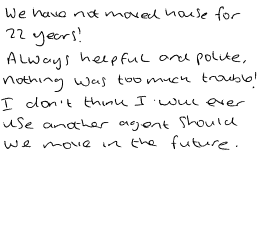 We have not moved house for
22 years!
Always helpful and polite,
nothing was too much trouble!
I don't think I will ever
use another agent should
we move in the future.